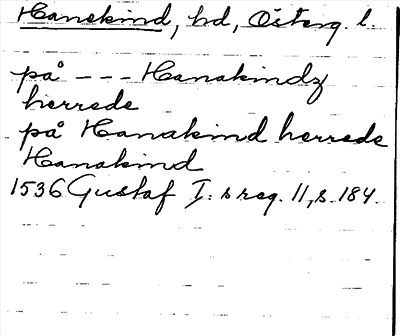 Hanekind, hd, Österg. l.
på --- Hanakindz
herrede
på Hanakind herrede
Hanakind
1536 Gustaf I:s reg. 11, s. 184.